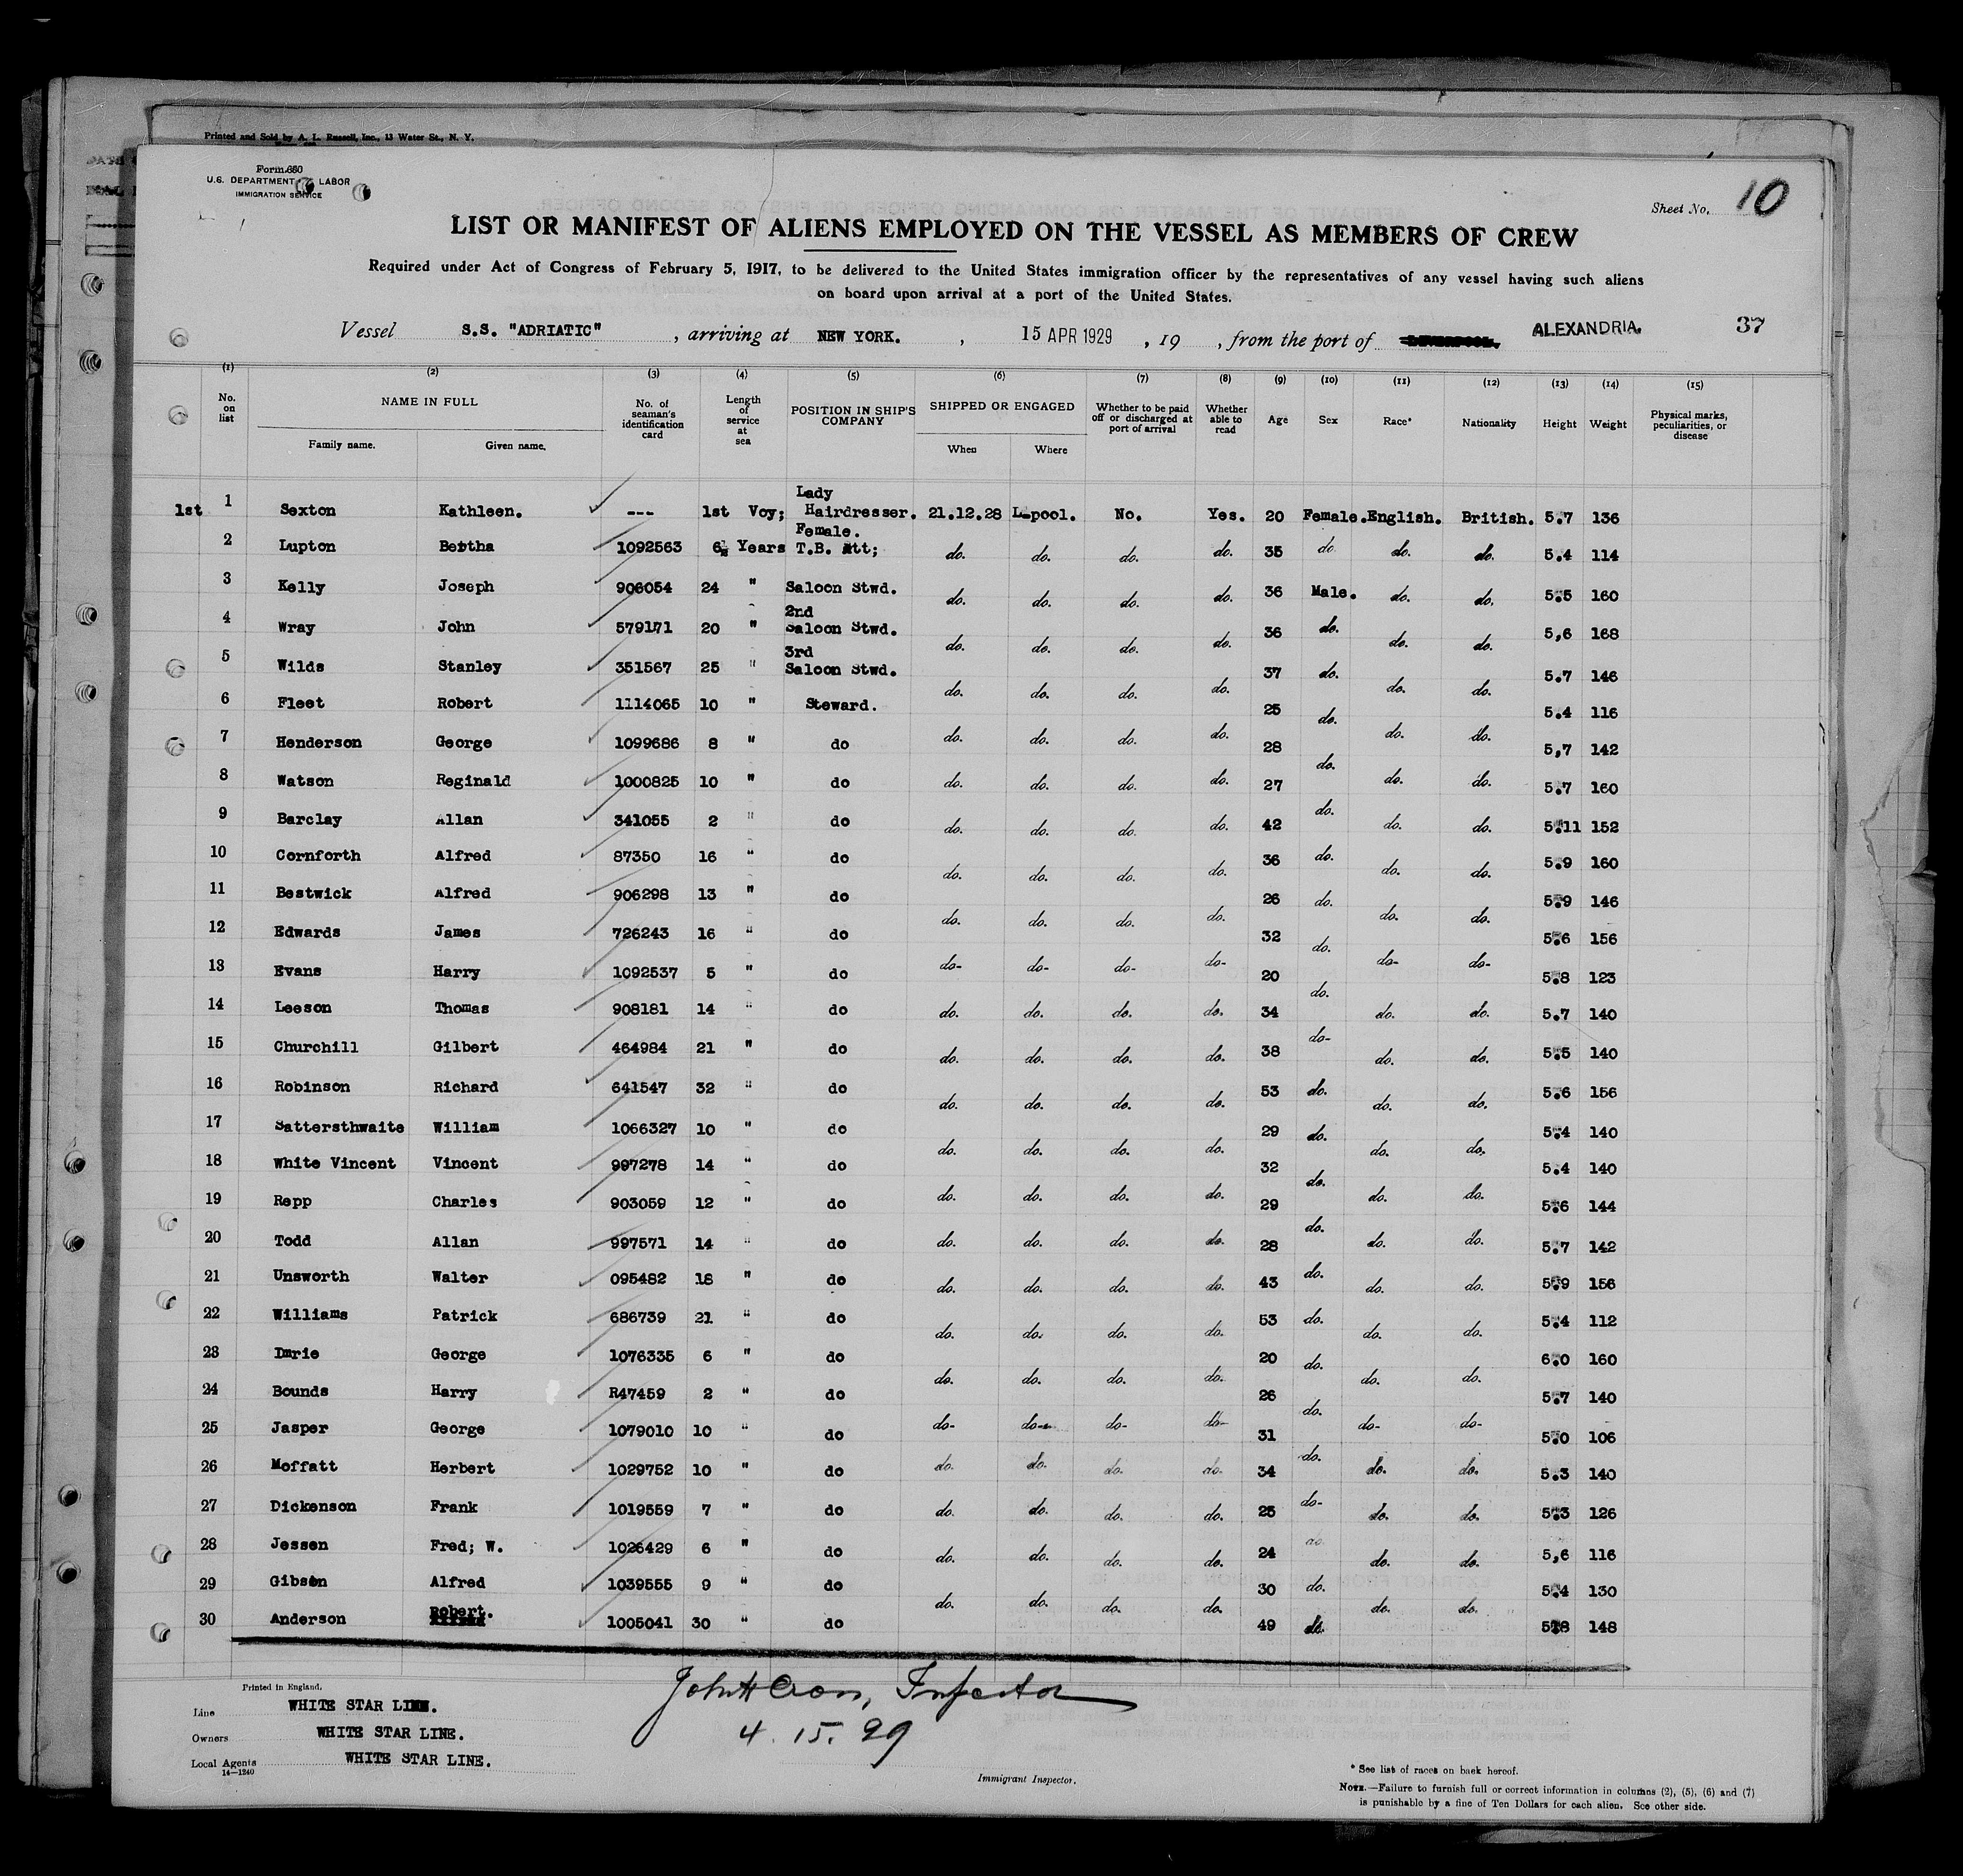 Printed and Sold by A. L. Russell, Inc., 13 Water St., N. Y.
Form 680
U.S. DEPARTMENT LABOR
IMMIGRATION SERVICE
Sheet No. 10
LIST OR MANIFEST OF ALIENS EMPLOYED ON THE VESSEL AS MEMBERS OF CREW
Required under Act of Congress of February 5, 1917, to be delivered to the United States immigration officer by the representatives of any vessel having such aliens
on board upon arrival at a port of the United States.
Vessel S.S. "ADRIATIC" , arriving at NEW YORK. , 15 APR 1929 , 19 , from the port of LIVERPOOL. ALEXANDRIA. 37
(1) (2) (3) (4) (5) (6) (7) (8) (9) (10) (11) (12) (13) (14) (15)
No. on list NAME IN FULL Family name. Given name. No. of seaman's identification card Length of service at sea POSITION IN SHIP'S COMPANY SHIPPED OR ENGAGED When Where Whether to be paid off or discharged at port of arrival Whether able to read Age Sex Race* Nationality Height Weight Physical marks, peculiarities, or disease
1st 1 Sexton Kathleen. --- 1st Voy; Lady Hairdresser. 21.12.28 L-pool. No. Yes. 20 Female. English. British. 5.7 136
2 Lupton Bertha 1092563 6½ Years Female. T.B. Att; do. do. do. do. 35 do do. do. 5.4 114
3 Kelly Joseph 906054 24 " Saloon Stwd. do. do. do. do. 36 Male. do. do. 5.5 160
4 Wray John 579171 20 " 2nd Saloon Stwd. do. do. do. do. 36 do. do. do. 5,6 168
5 Wilds Stanley 351567 25 " 3rd Saloon Stwd. do. do. do. do. 37 do. do. do. 5.7 146
6 Fleet Robert 1114065 10 " Steward. do. do. do. do. 25 do. do. do. 5.4 116
7 Henderson George 1099686 8 " do do. do. do. do. 28 do. do. do. 5,7 142
8 Watson Reginald 1000825 10 " do do. do. do. do. 27 do. do. do. 5.7 160
9 Barclay Allan 341055 2 " do do. do. do. do. 42 do. do. do. 5.11 152
10 Cornforth Alfred 87350 16 " do do. do. do. do. 36 do. do. do. 5.9 160
11 Bestwick Alfred 906298 13 " do do. do. do. do. 26 do. do. do. 5.9 146
12 Edwards James 726243 16 " do do- do- do- do- 32 do. do- do- 5.6 156
13 Evans Harry 1092537 5 " do do. do. do. do. 20 do. do. do. 5.8 123
14 Leeson Thomas 908181 14 " do do. do. do. do. 34 do- do. do. 5.7 140
15 Churchill Gilbert 464984 21 " do do. do. do. do. 38 do. do. do. 5.5 140
16 Robinson Richard 641547 32 " do do. do. do. do. 53 do. do. do. 5.6 156
17 Sattersthwaite William 1066327 10 " do do. do. do. do. 29 do. do. do. 5.4 140
18 White Vincent Vincent 997278 14 " do do. do. do. do. 32 do. do. do. 5.4 140
19 Repp Charles 903059 12 " do do. do. do. do. 29 do. do. do. 5.6 144
20 Todd Allan 997571 14 " do do. do. do. do. 28 do. do. do. 5.7 142
21 Unsworth Walter 095482 18 " do do. do. do. do. 43 do. do. do. 5.9 156
22 Williams Patrick 686739 21 " do do. do. do. do. 53 do. do. do. 5.4 112
23 Imrie George 1076335 6 " do do. do. do. do. 20 do. do. do. 6.0 160
24 Bounds Harry R47459 2 " do do- do- do- do- 26 do. do- do- 5.7 140
25 Jasper George 1079010 10 " do do. do. do. do. 31 do. do. do. 5.0 106
26 Moffatt Herbert 1029752 10 " do do. do. do. do. 34 do- do. do. 5.3 140
27 Dickenson Frank 1019559 7 " do do. do. do. do. 25 do. do. do. 5.3 126
28 Jessen Fred; W. 1026429 6 " do do. do. do. do. 24 do. do. do. 5,6 116
29 Gibson Alfred 1039555 9 " do do. do. do. do. 30 do. do. do. 5.4 130
30 Anderson Robert. 1005041 30 " do 49 do. 5.8 148
Printed in England.
Line WHITE STAR LINE.
Owners WHITE STAR LINE.
Local Agents WHITE STAR LINE.
14—1240
Inspector
4. 15. 29
Immigrant Inspector.
* See list of races on back hereof.
NOTE.—Failure to furnish full or correct information in columns (2), (5), (6) and (7)
is punishable by a fine of Ten Dollars for each alien. See other side.